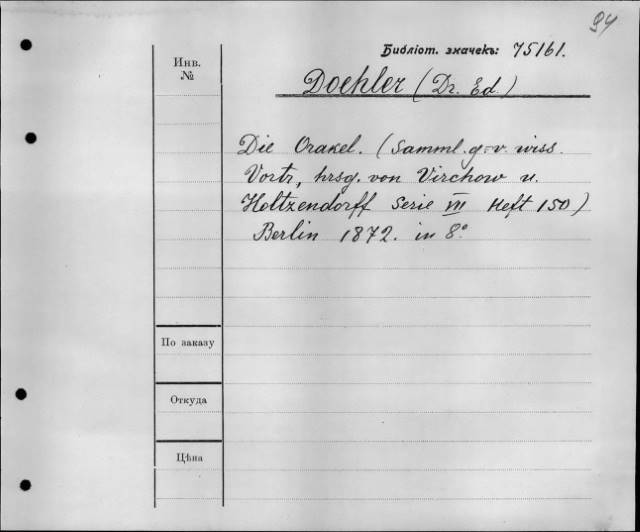 94
Библіот. значекъ: 75161.
Инв.
№
Doehler (Dr. Ed.)
Die Orakel. (Samml. g.v. wiss.
Vortr., hrsg. von Virchow u.
Holtzendorff Serie VII Heft 150)
Berlin 1872. in 8°
По заказу
Откуда
Цѣна